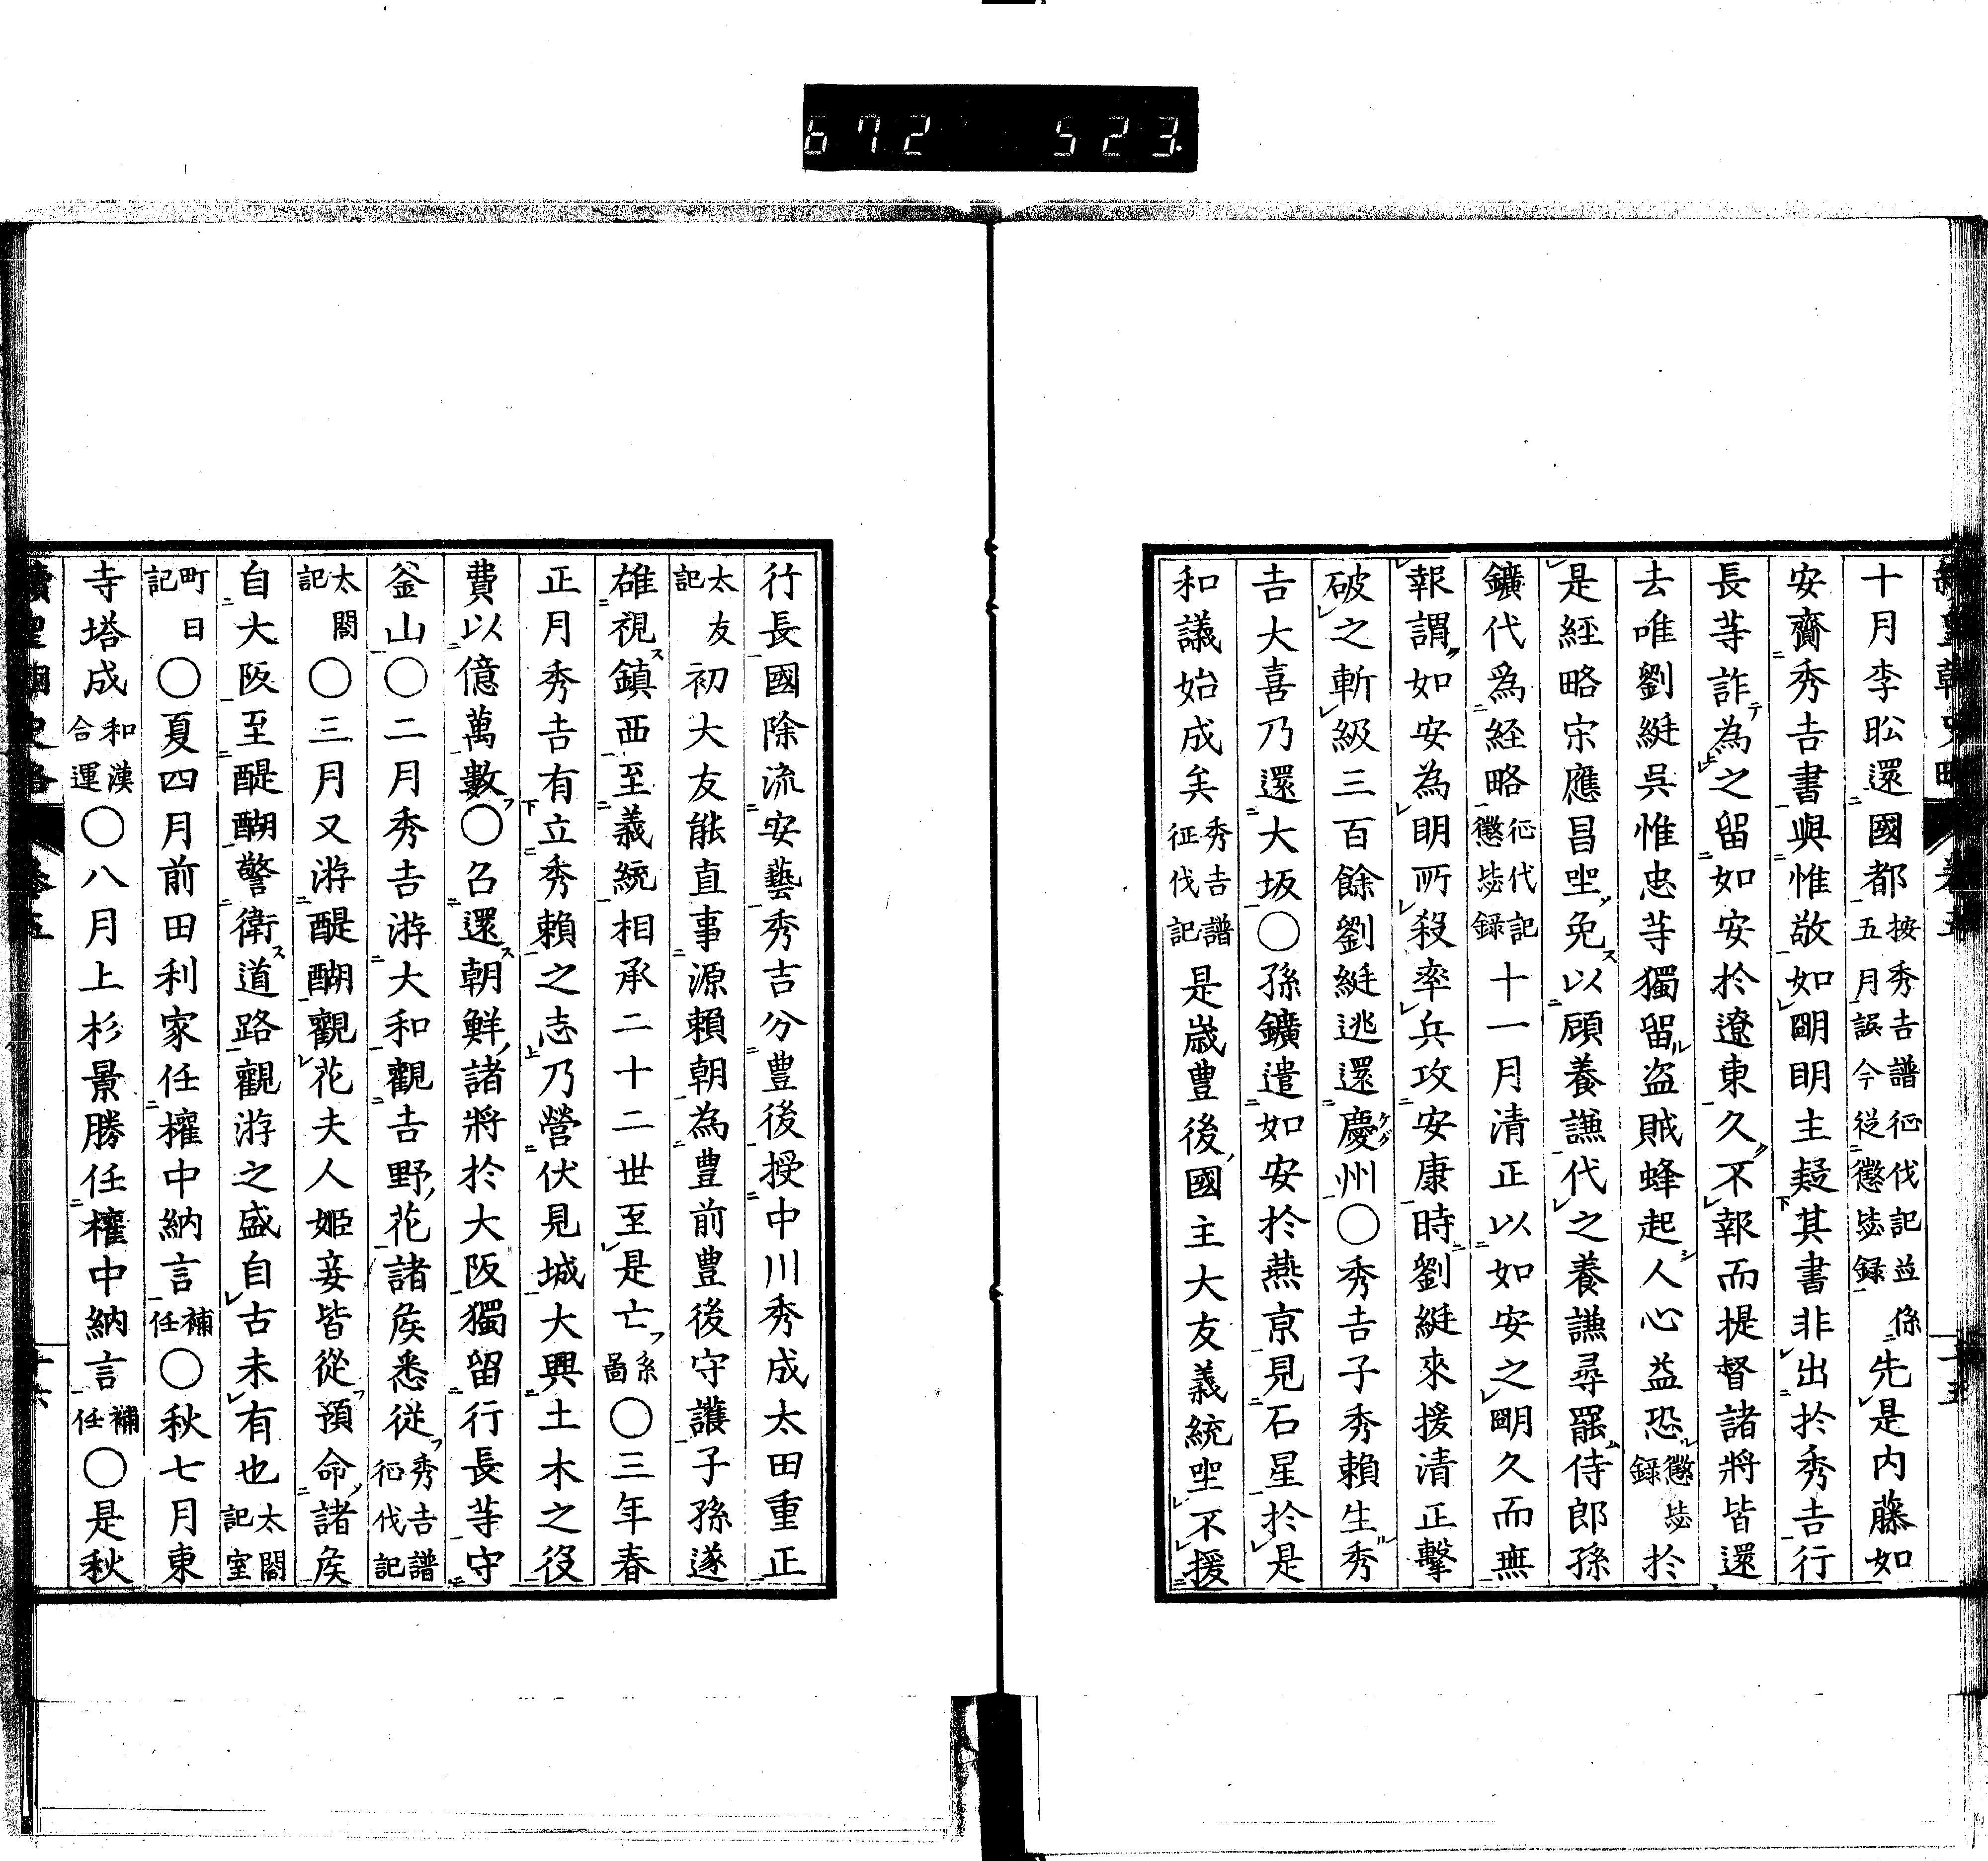 672 523.
十月李昖還國都按秀吉譜征伐記並係五月誤今從懲毖録先是内藤如
安齎秀吉書與惟敬如明明主疑其書非出於秀吉行
長等詐為之留如安於遼東久不報而提督諸將皆還
去唯劉綎呉惟忠等獨留盗賊蜂起人心益恐懲毖録於
是経略宋應昌坐免以顧養謙代之養謙尋罷侍郎孫
鑛代爲経略征伐記懲毖録十一月清正以如安之明久而無
報謂如安為明所殺率兵攻安康時劉綎來援清正撃
破之斬級三百餘劉綎逃還慶州〇秀吉子秀頼生秀
吉大喜乃還大坂〇孫鑛遣如安於燕京見石星於是
和議始成矣秀吉譜征伐記是歳豊後國主大友義統坐不援
行長國除流安藝秀吉分豊後授中川秀成太田重正
太友記初大友能直事源頼朝為豊前豊後守護子孫遂
雄視鎮西至義統相承二十二世至是亡系圖〇三年春
正月秀吉有立秀頼之志乃營伏見城大興土木之役
費以億萬數〇召還朝鮮諸將於大阪獨留行長等守
釜山〇二月秀吉游大和觀吉野花諸侯悉從秀吉譜征伐記
太閤記〇三月又游醍醐觀花夫人姫妾皆從預命諸侯
自大阪至醍醐警衛道路觀游之盛自古未有也太閤記室
町日記〇夏四月前田利家任權中納言補任〇秋七月東
寺塔成和漢合運〇八月上杉景勝任權中納言補任〇是秋
續皇朝史略 卷五